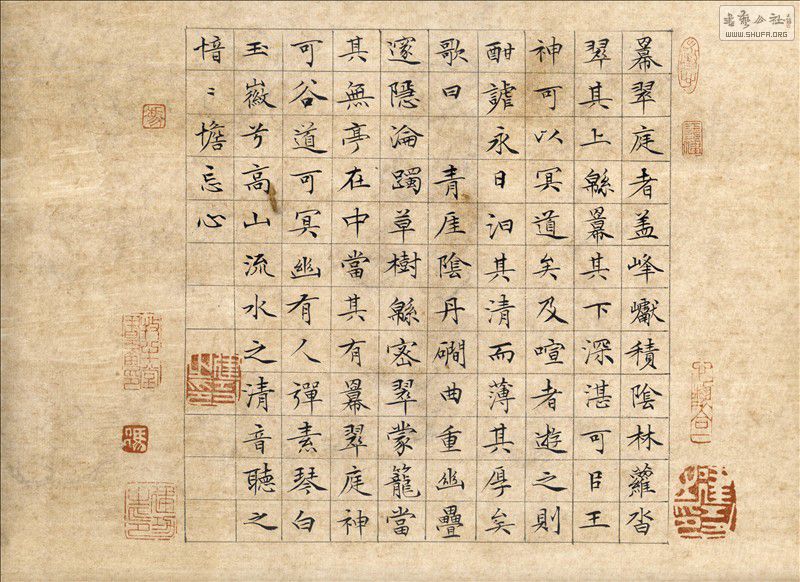 羃翠庭者盖峰巘積陰林蘿沓
翠其上緜羃其下深湛可㠯王
神可以冥道矣及喧者遊之則
酣謔永日汨其清而薄其厚矣
歌曰 青崖陰丹磵曲重幽疊
邃隱淪躅草樹緜密翠蒙籠當
其無亭在中當其有羃翠庭神
可谷道可冥幽有人彈素琴白
玉徽兮高山流水之清音聽之
愔〻憺忘心
馮
書藝公社
WWW.SHUFA.ORG